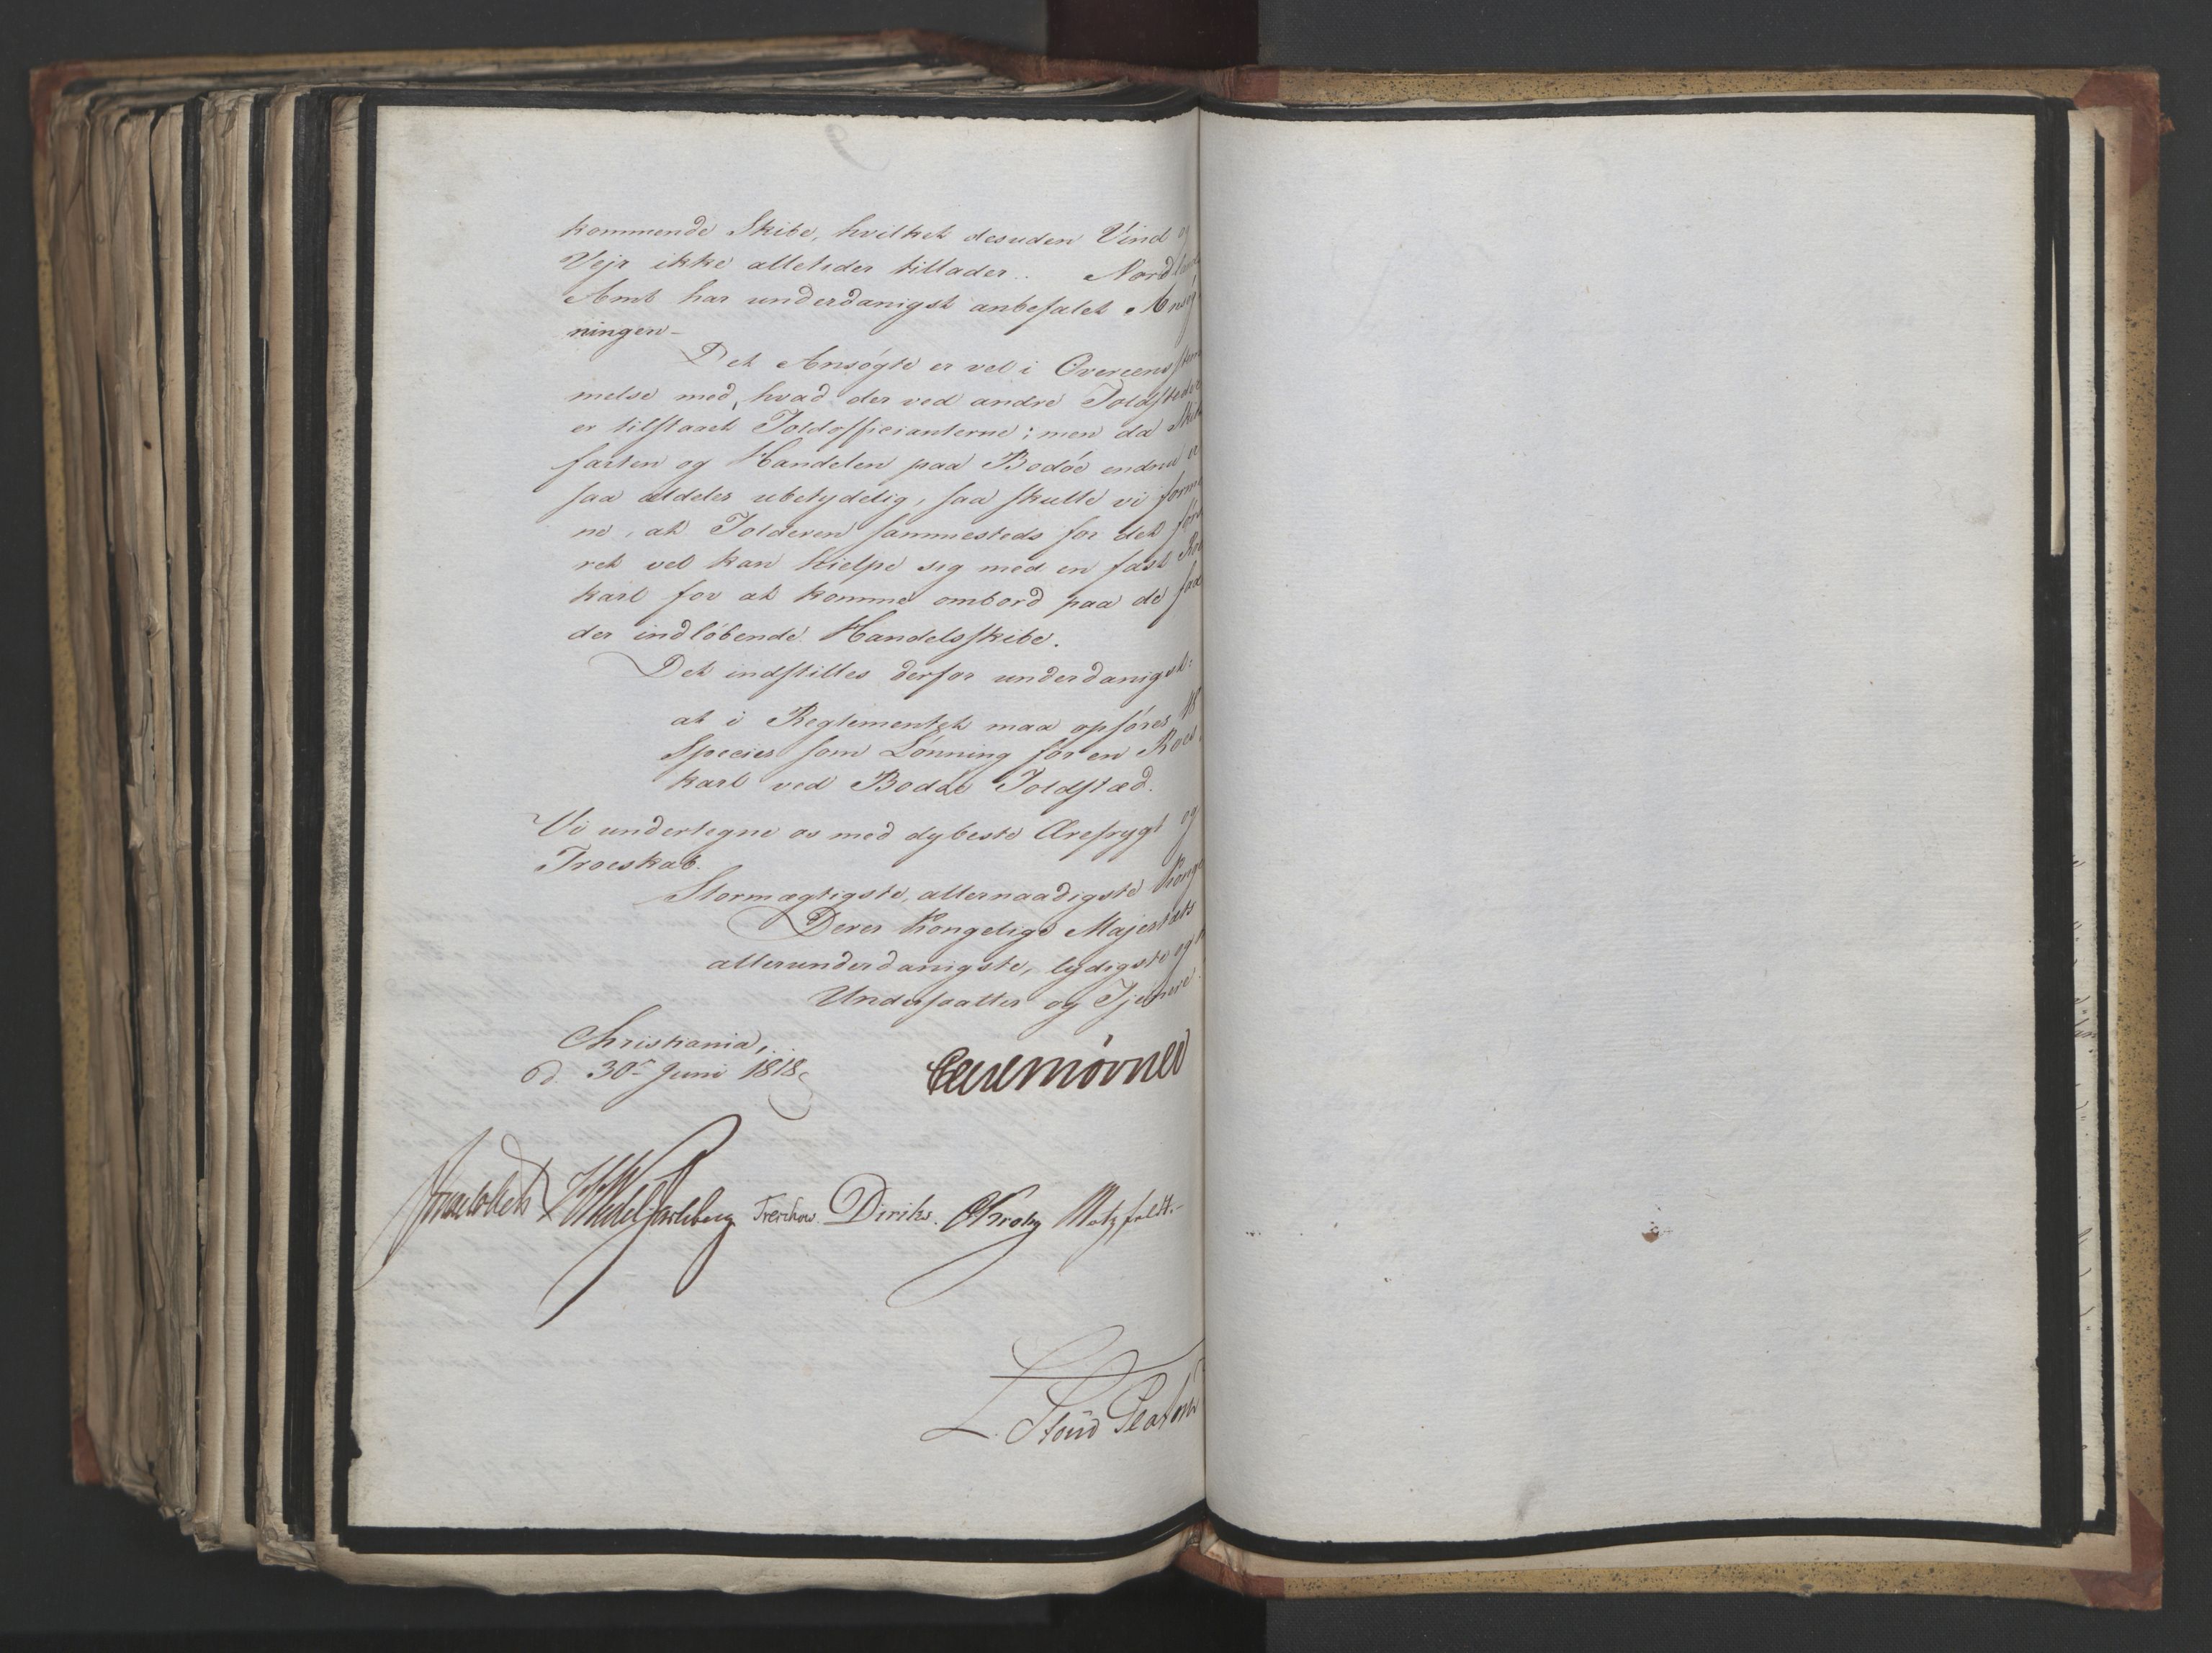 kommende Skibe, hvilket desuden Vind og
Vejr ikke alletider tillader.. Nordland
Amt har underdanigst anbefalet Ansøg
ningen -
Det Ansøgte er vel i Overeensstem
melse med, hvad der ved andre Toldsteder
er tilstaaet Toldofficianterne; men da Skib
farten og Handelen paa Bodøe endnu er
saa aldeles ubetydelig, saa skulle vi forme
ne, at Tolderen sammesteds for det føre
ret vel kan hielpe sig med en fast Roe
karl for at komme ombord paa de faa
der indløbende Handelsskibe.
Det indstilles derfor underdanigst:
at i Reglementet maa opføres 48
Species som Lønning for en Roes
karl ved Bodøe Toldsted.
Vi undertegne os med dybeste Ærefrygt og
Troeskab.
Stormægtigste, allernaadigste Konge
Deres Kongelige Majestæts
allerunderdanigste, lydigste og
Undersaatter og Tjenere.
Christiania,
d. 30te Juni 1818
Carl Mörner
Sommerhielm HWedelJarlsberg Treschow. Diriks. CKrohg Motzfeldt.-
L. Stoud Platou